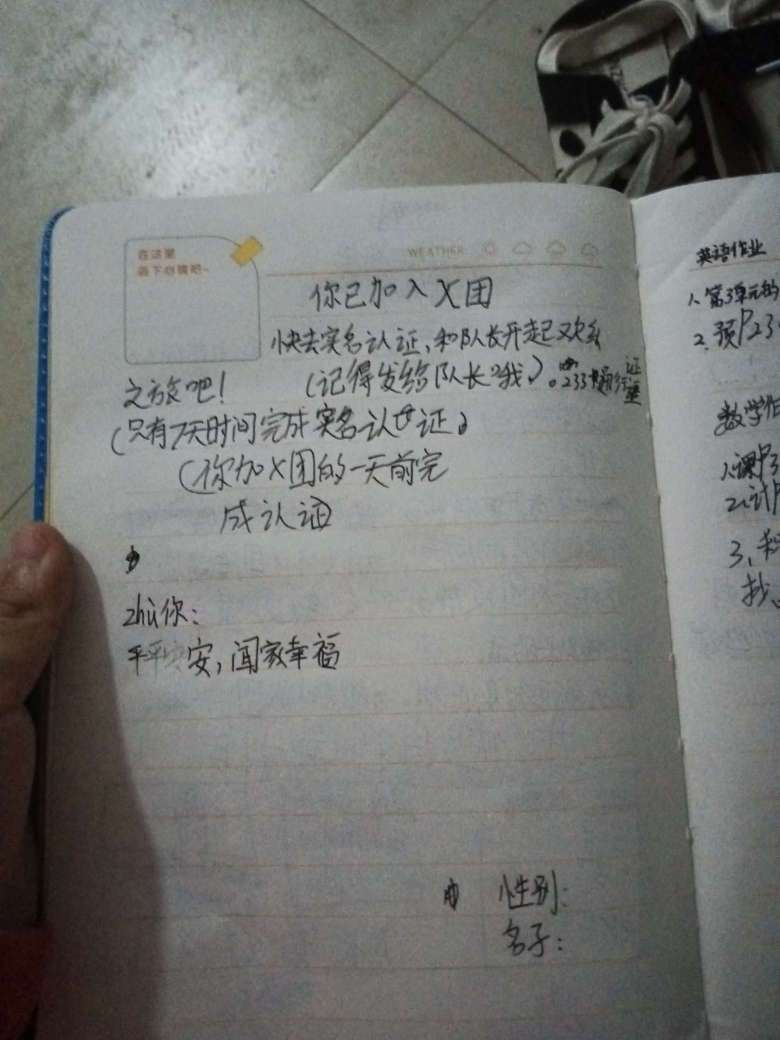 在这里
画下心情吧~
WEATHER
你已加入X团
快去实名认证,和队长开起欢乐
之旅吧!(记得发给队长:我)。
(只有7天时间完成实名认证)
(你加X团的一天前完
成认证
zhù你:
平平安安,阖家幸福
性别:
名子:
英语作业
1、第3单元的
2、预P23
数学作
1、课P3
2、计P
3、
找